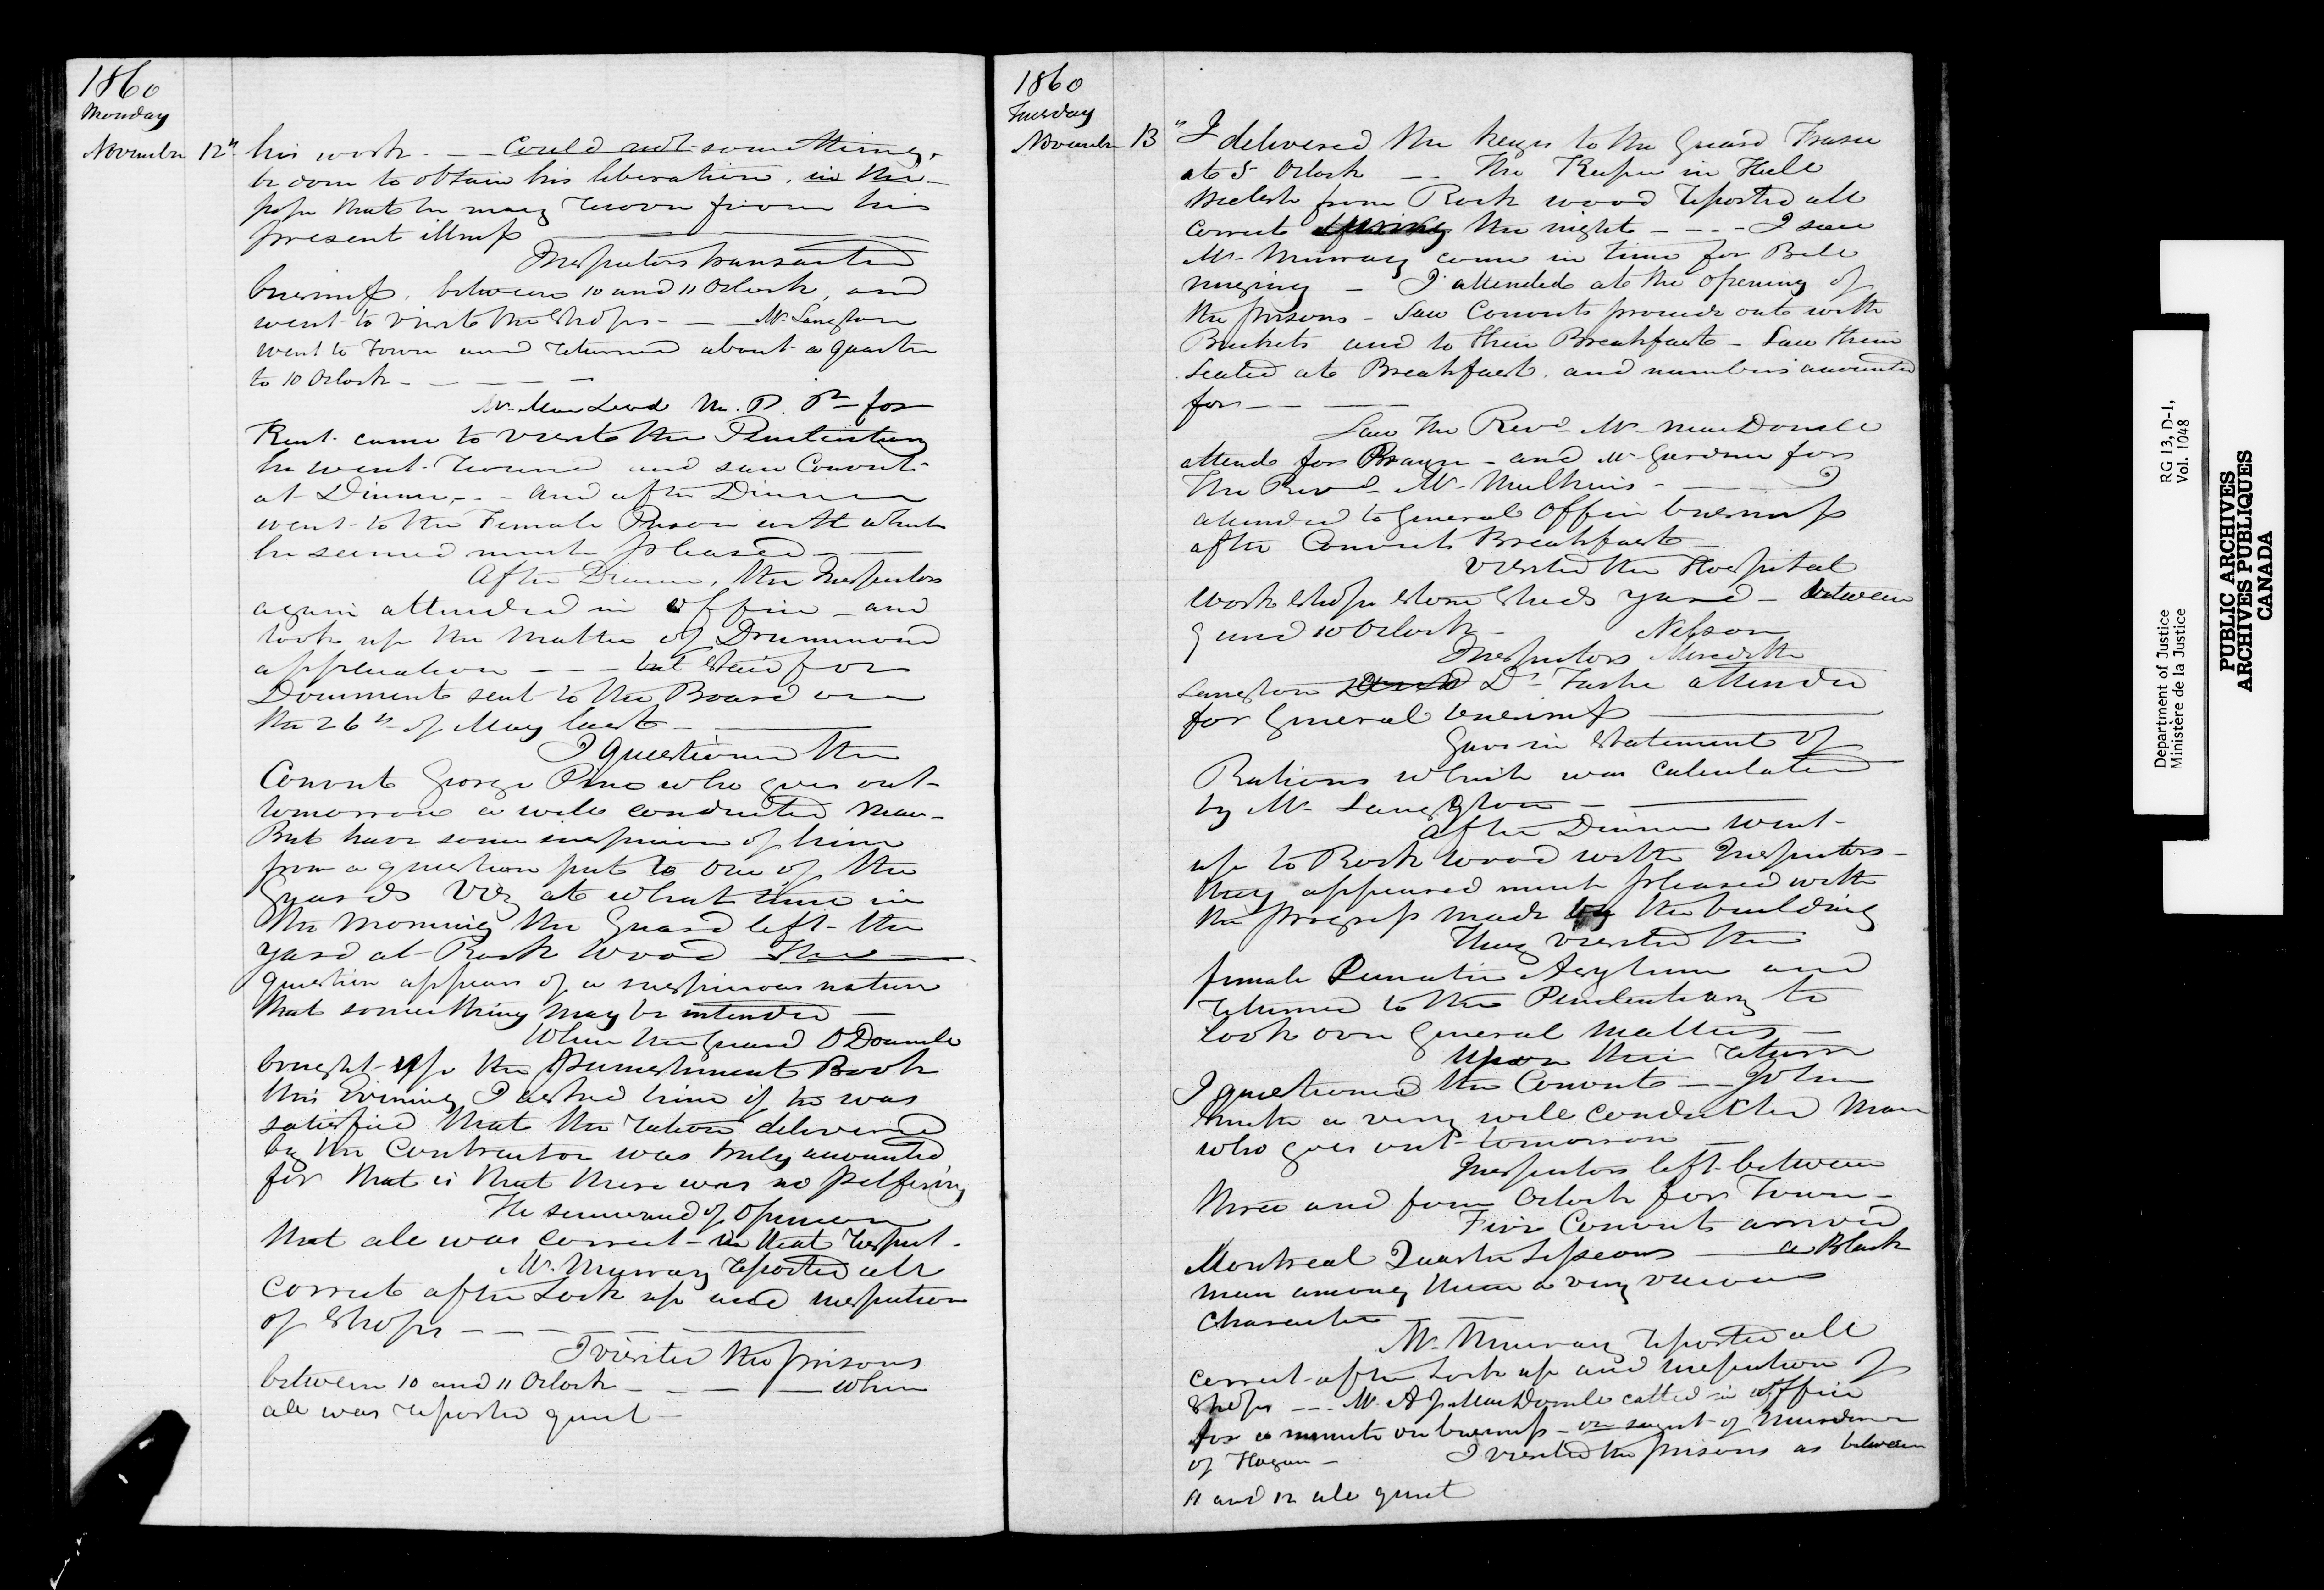 1860
Monday
November 12th his work. — Could not something
be done to obtain his liberation, in the
hope that he may recover from his
present illness
Inspectors transacted
business, between 10 and 11 Oclock, and
went to visit the Shops — Mr. Langton
went to Town and returned about a quarter
to 10 Oclock —
Mr. MacLeod M. P. P. for
Kent came to visit the Penitentiary
he went round and saw Convicts
at Dinner — and after Dinner
went to the Female Prison with which
he seemed much pleased —
After Dinner, the Inspectors
again attended in Office — and
took up the matter of Drummond
application — but Staid for
Document sent to the Board on
the 26th of May last —
I questioned the
Convict George Pine who goes out
tomorrow a well conducted man —
But have some suspicion of him
from a question put to one of the
Guards Viz at what time in
the morning the Guard left the
yard at Rock Wood The
question appears of a suspicious nature
that something may be intended —
When the Guard O Donnell
brought up the Punishment Book
this Evening I asked him if he was
satisfied that the rations delivered
by the Contractor was truly accounted
for that is that there was no pilfering
He seemed of Opinion
that all was correct — in that respect.
Mr. Murray reported all
correct after Lock up and inspection
of Shops —
I visited the prisons
between 10 and 11 Oclock — When
all was reported quiet —
1860
Tuesday
November 13" I delivered the keys to the Guard Fraser
at 5 Oclock — The Keeper in Hall
from Rock wood reported all
correct during the night — I saw
Mr. Murray come in time for Bell
ringing — I attended at the opening of
the prisons — Saw Convicts proceed out with
Buckets and to their Breakfast — Saw them
seated at Breakfast. and numbers accounted
for —
Saw The Revd. Mr. MacDonell
attend for Prayer — and Mr. Gardner for
The Revd. Mr. Mulkins —
attended to general Office business
after Convicts Breakfast —
visited the Hospital
work shops Stone Sheds yard — between
9 and 10 Oclock — Nelson
Inspectors Meredith
Langton Dr. Tache attended
for general business —
Gave in Statement of
Rations which was calculated
by Mr. Langton —
After Dinner went
up to Rock Wood with Inspectors —
they appeared much pleased with
the progress made by the building
They visited the
female Lunatic Asylum and
returned to the Penitentiary to
look over general Matters —
Upon their return
I questioned the Convict — John
Smith a very well conducted Man
who goes out tomorrow —
Inspectors left between
three and four Oclock for Town —
Five Convicts arrived
Montreal Quarter Sessions — a Black
man among them a very vicious
character —
Mr. Murray reported all
correct after Lock up and inspection of
Shops — Mr. A J. MacDonell called in Office
for a minute on business — on of Murder
of Hogan — I visited the prisons as between
11 and 12 all quiet
Department of Justice
Ministère de la Justice
RG 13, D-1,
Vol. 1048
PUBLIC ARCHIVES
ARCHIVES PUBLIQUES
CANADA